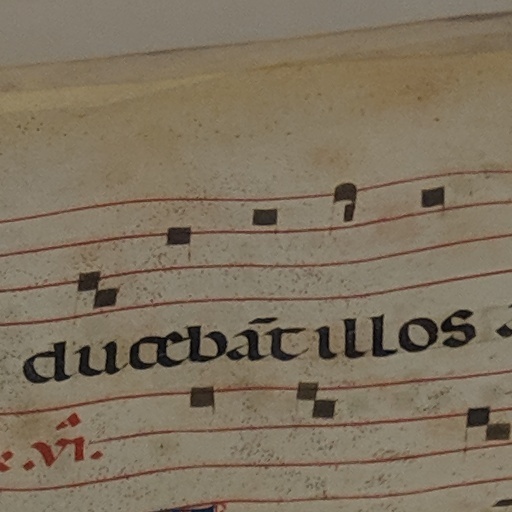 ducebāt illos
.vi.